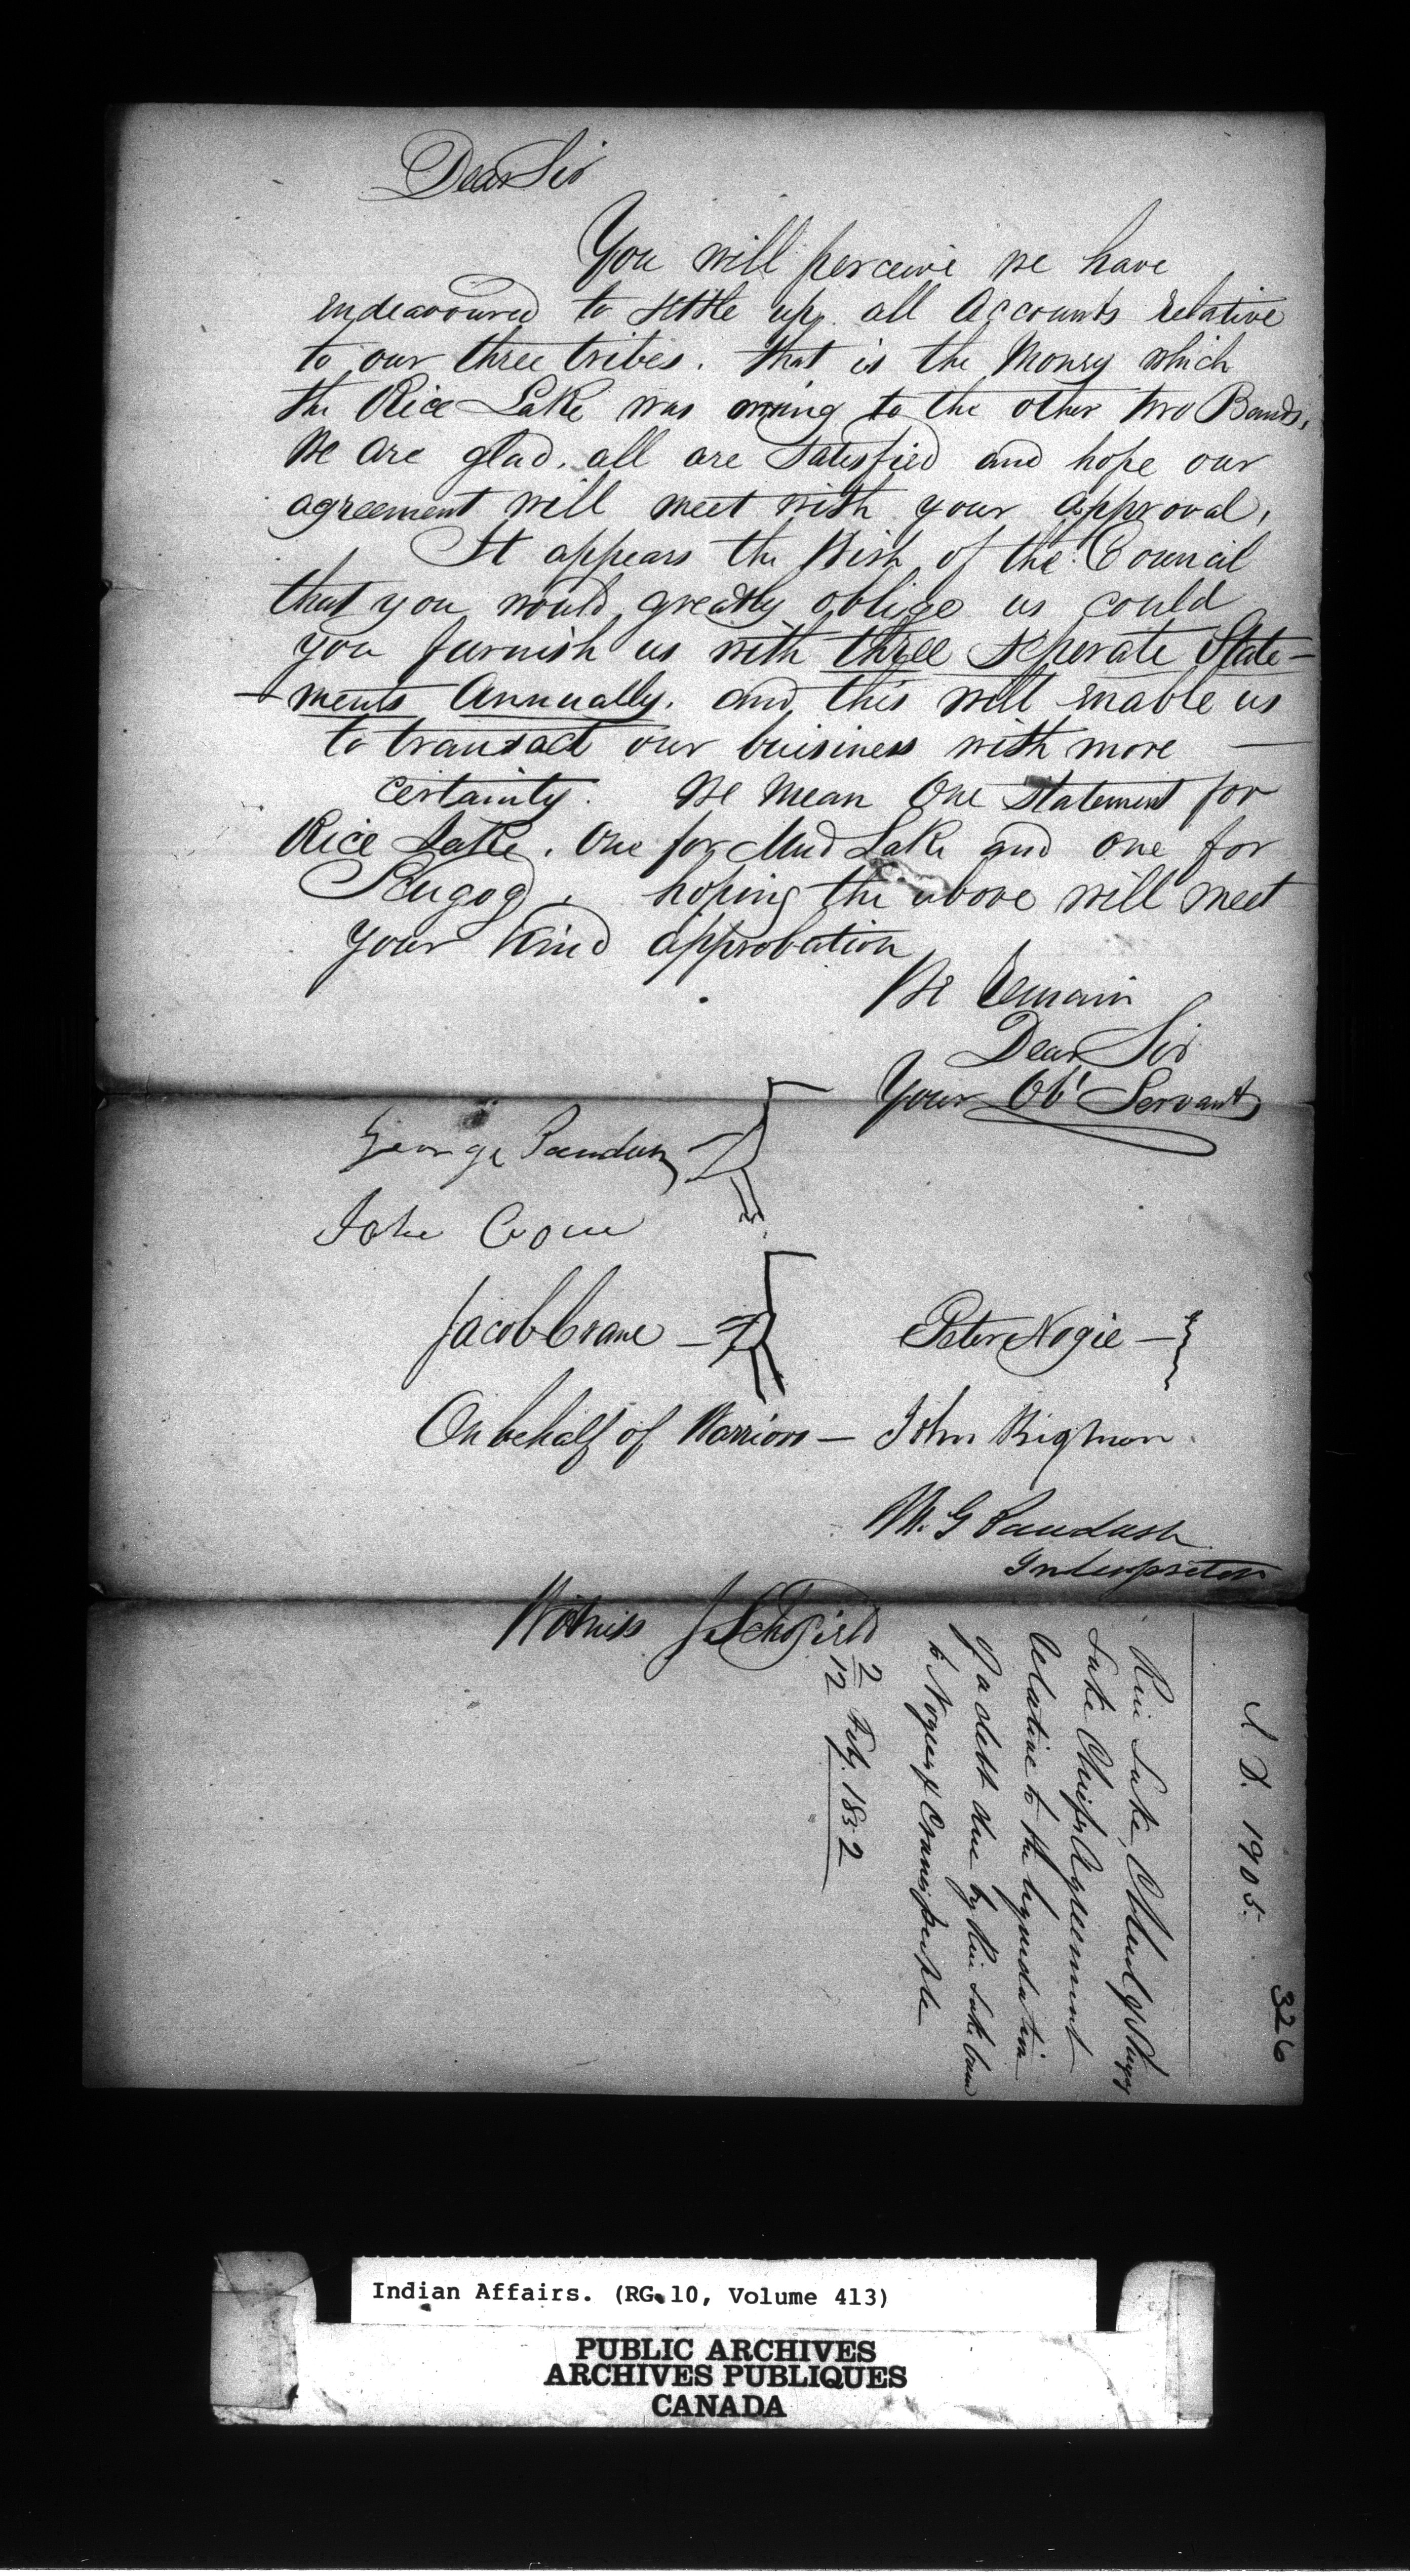 Dear Sir
You will perceive we have
endeavoured to settle up all accounts relative
to our three tribes. that is the Money which
the Rice Lake was owing to the other two Bands,
We are glad, all are satisfied and hope our
agreement will meet with your approval,
It appears the Wish of the Council
that you would greatly oblige us could
you furnish us with three seperate State-
-ments Annually, and this will enable us
to transact our buisiness with more —
certainty. We mean One Statement for
Rice Lake, One for Mud Lake and One for
Scugog, hoping the above will meet
your kind approbation
We Remain
Dear Sir
Your Obt Servants
George Paudash
John Crow
Jacob Crane —
Peter Nogie —
On behalf of Warriors — John Bigman
M. G Paudash
Interpreter
Witness J. Schofield
I. D. 1905.
326
Rice Lake, Mud & Skugog
Lake Chiefs Agreement
Relative to the liquidation
of a debt due by Rice Lake band
to Nogies & Cranes people
2
12 Feby. 1852
Indian Affairs. (RG 10, Volume 413)
PUBLIC ARCHIVES
ARCHIVES PUBLIQUES
CANADA